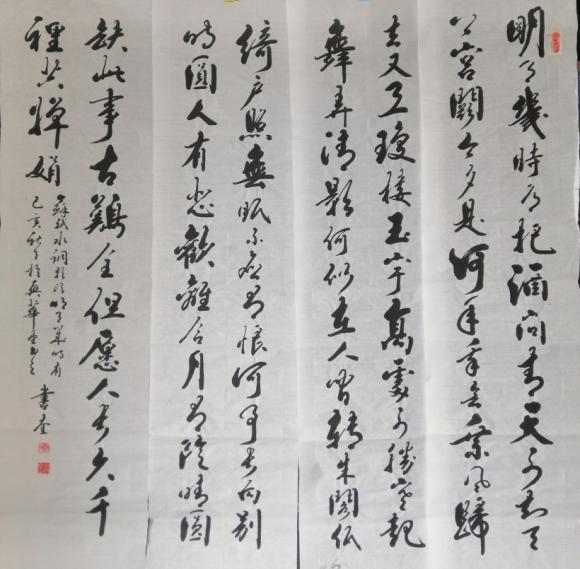 明月幾時有把酒問青天不知天
上宮闕今夕是何年我欲乘風歸
去又恐瓊樓玉宇高處不勝寒起
舞弄清影何似在人間轉朱閣低
綺戶照無眠不應有恨何事長向別
時圓人有悲歡離合月有陰晴圓
缺此事古難全但願人長久千
裡共嬋娟
蘇軾水調歌頭明月幾時有
己亥秋月於
書奎